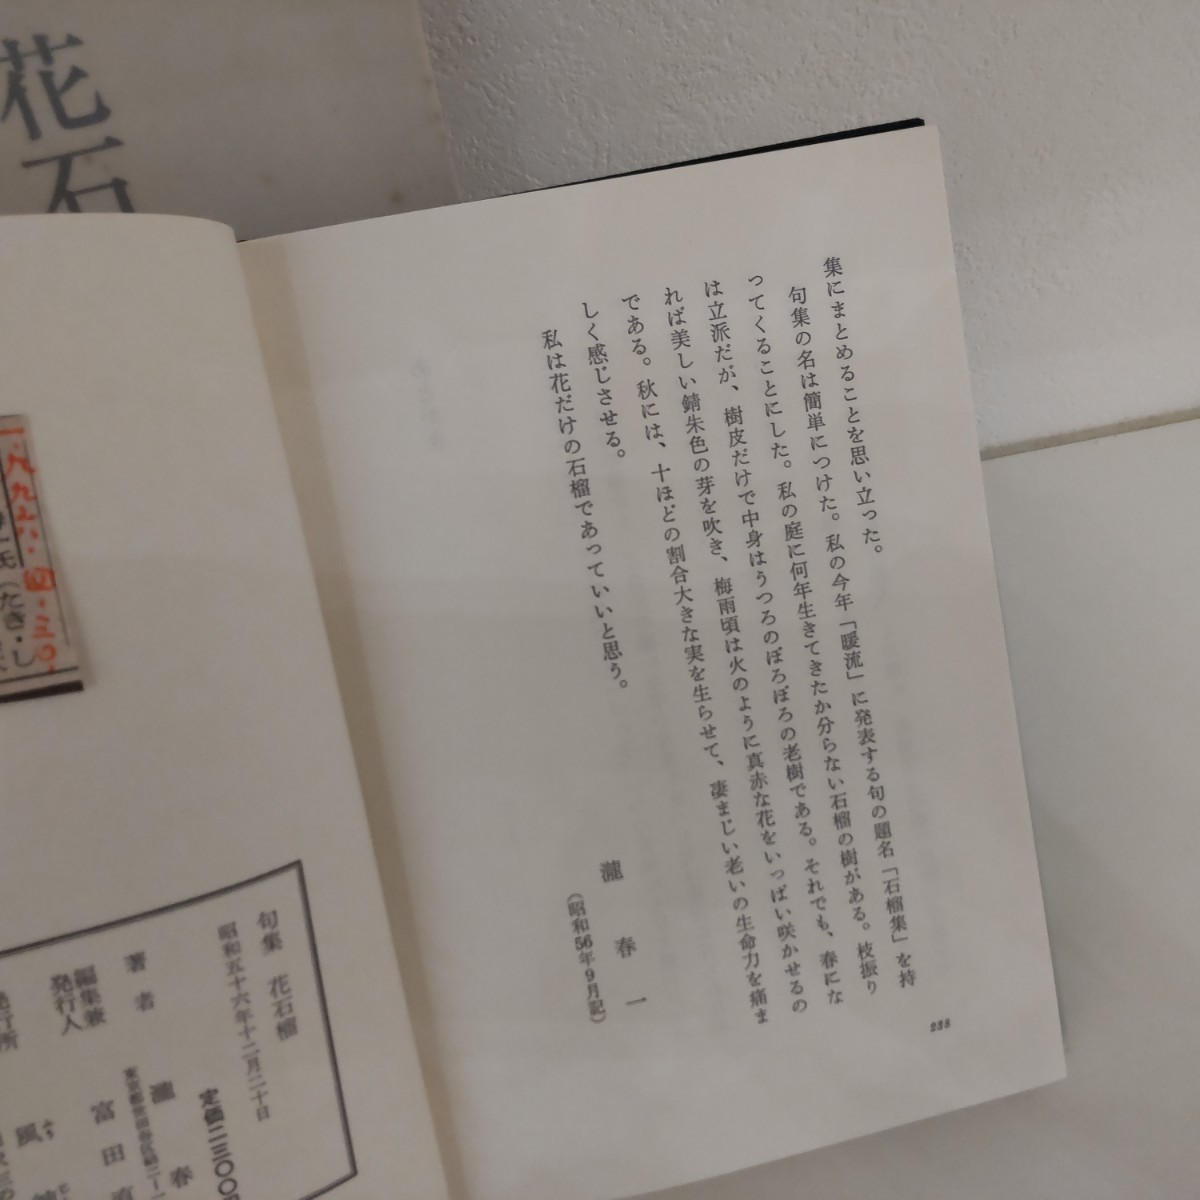 集にまとめることを思い立った。
句集の名は簡単につけた。私の今年「暖流」に発表する句の題名「石榴集」を持
ってくることにした。私の庭に何年生きてきたか分らない石榴の樹がある。枝振り
は立派だが、樹皮だけで中身はうつろのぼろぼろの老樹である。それでも、春にな
れば美しい錆朱色の芽を吹き、梅雨頃は火のように真赤な花をいっぱい咲かせるの
である。秋には、十ほどの割合大きな実を生らせて、凄まじい老いの生命力を痛ま
しく感じさせる。
私は花だけの石榴であっていいと思う。
瀧春一
（昭和56年9月記）
238
花石
一九九六・四・三〇
氏（たき・し
句集 花石榴
昭和五十六年十二月二十日
定価二三〇〇円
著者 瀧春
編集兼
発行人 富田直
発行所 風